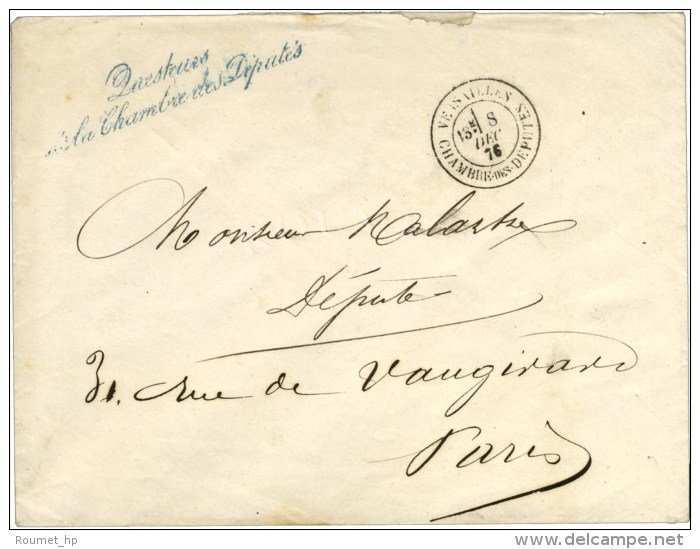 Questeurs
de la Chambre des Députés
VERSAILLES
15E / 8
DEC
76
CHAMBRE-DES-DEPUTES
Monsieur Malartre
Député
31. rue de Vaugirard
Paris
Roumet_hp
delcampe.net